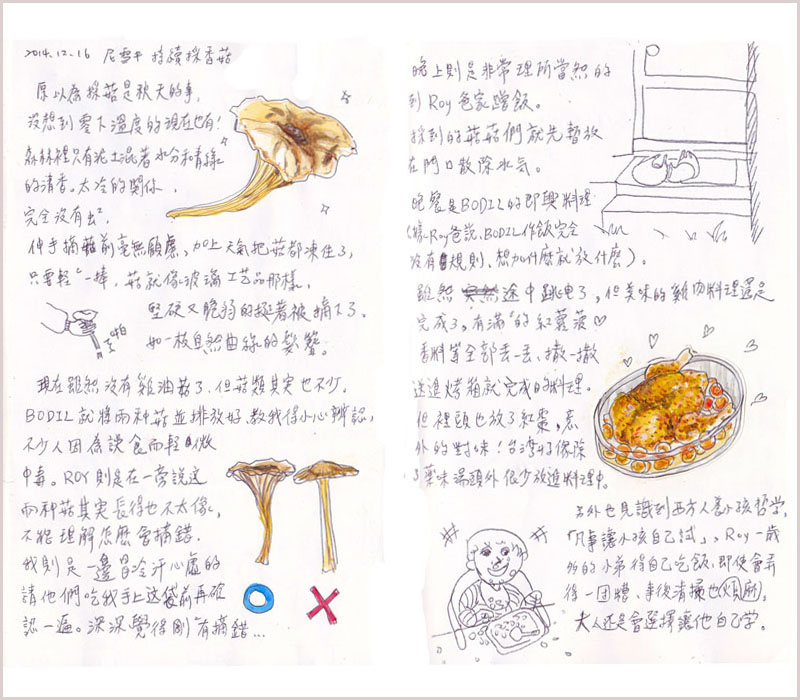 2014.12.16 尼雪平 持續採香菇
原以為採菇是秋天的事,
沒想到零下溫度的現在也有!
森林裡只有泥土混著水分和青綠
的清香。太冷的關係,
完全沒有虫,
伸手摘菇前毫無顧慮,加上天氣把菇都凍住了,
只要輕輕一捧,菇就像玻璃工藝品那樣,
堅硬又脆弱的挺著被摘下了。
如一枝自然曲線的髮簪。
啪
現在雖然沒有雞油菇了,但菇類其實也不少。
BODIL就將兩种菇並排放好,教我得小心辨認,
不少人因為誤食而輕微
中毒。ROY則是在一旁說這
兩种菇其實長得也不太像,
不能理解怎麼會摘錯.
我則是一邊冒冷汗心虛的
請他們吃我手上這袋前再確
認一遍。深深覺得剛有摘錯...
晚上則是非常理所當然的
到Roy爸家蹭飯。
採到的菇菇們就先暫放
在門口散除水氣。
晚餐是BODIL的即興料理
(據Roy爸說,BODIL作飯完全
沒有規則、想加什麼就放什麼)。
雖然途中跳电了,但美味的雞肉料理還是
完成了,有滿滿的紅蘿蔔♡
香料等全部丟一丟、撒一撒
送進烤箱就完成的料理。
但裡頭也放了紅棗,意
外的對味!台灣好像除
了藥味湯頭外很少放進料理中。
另外也見識到西方人養小孩哲學,
「凡事讓小孩自己試」,Roy一歲
多的小弟得自己吃飯,即使會弄
得一團糟、事後清掃也煩麻,
大人還是會選擇讓他自己學。